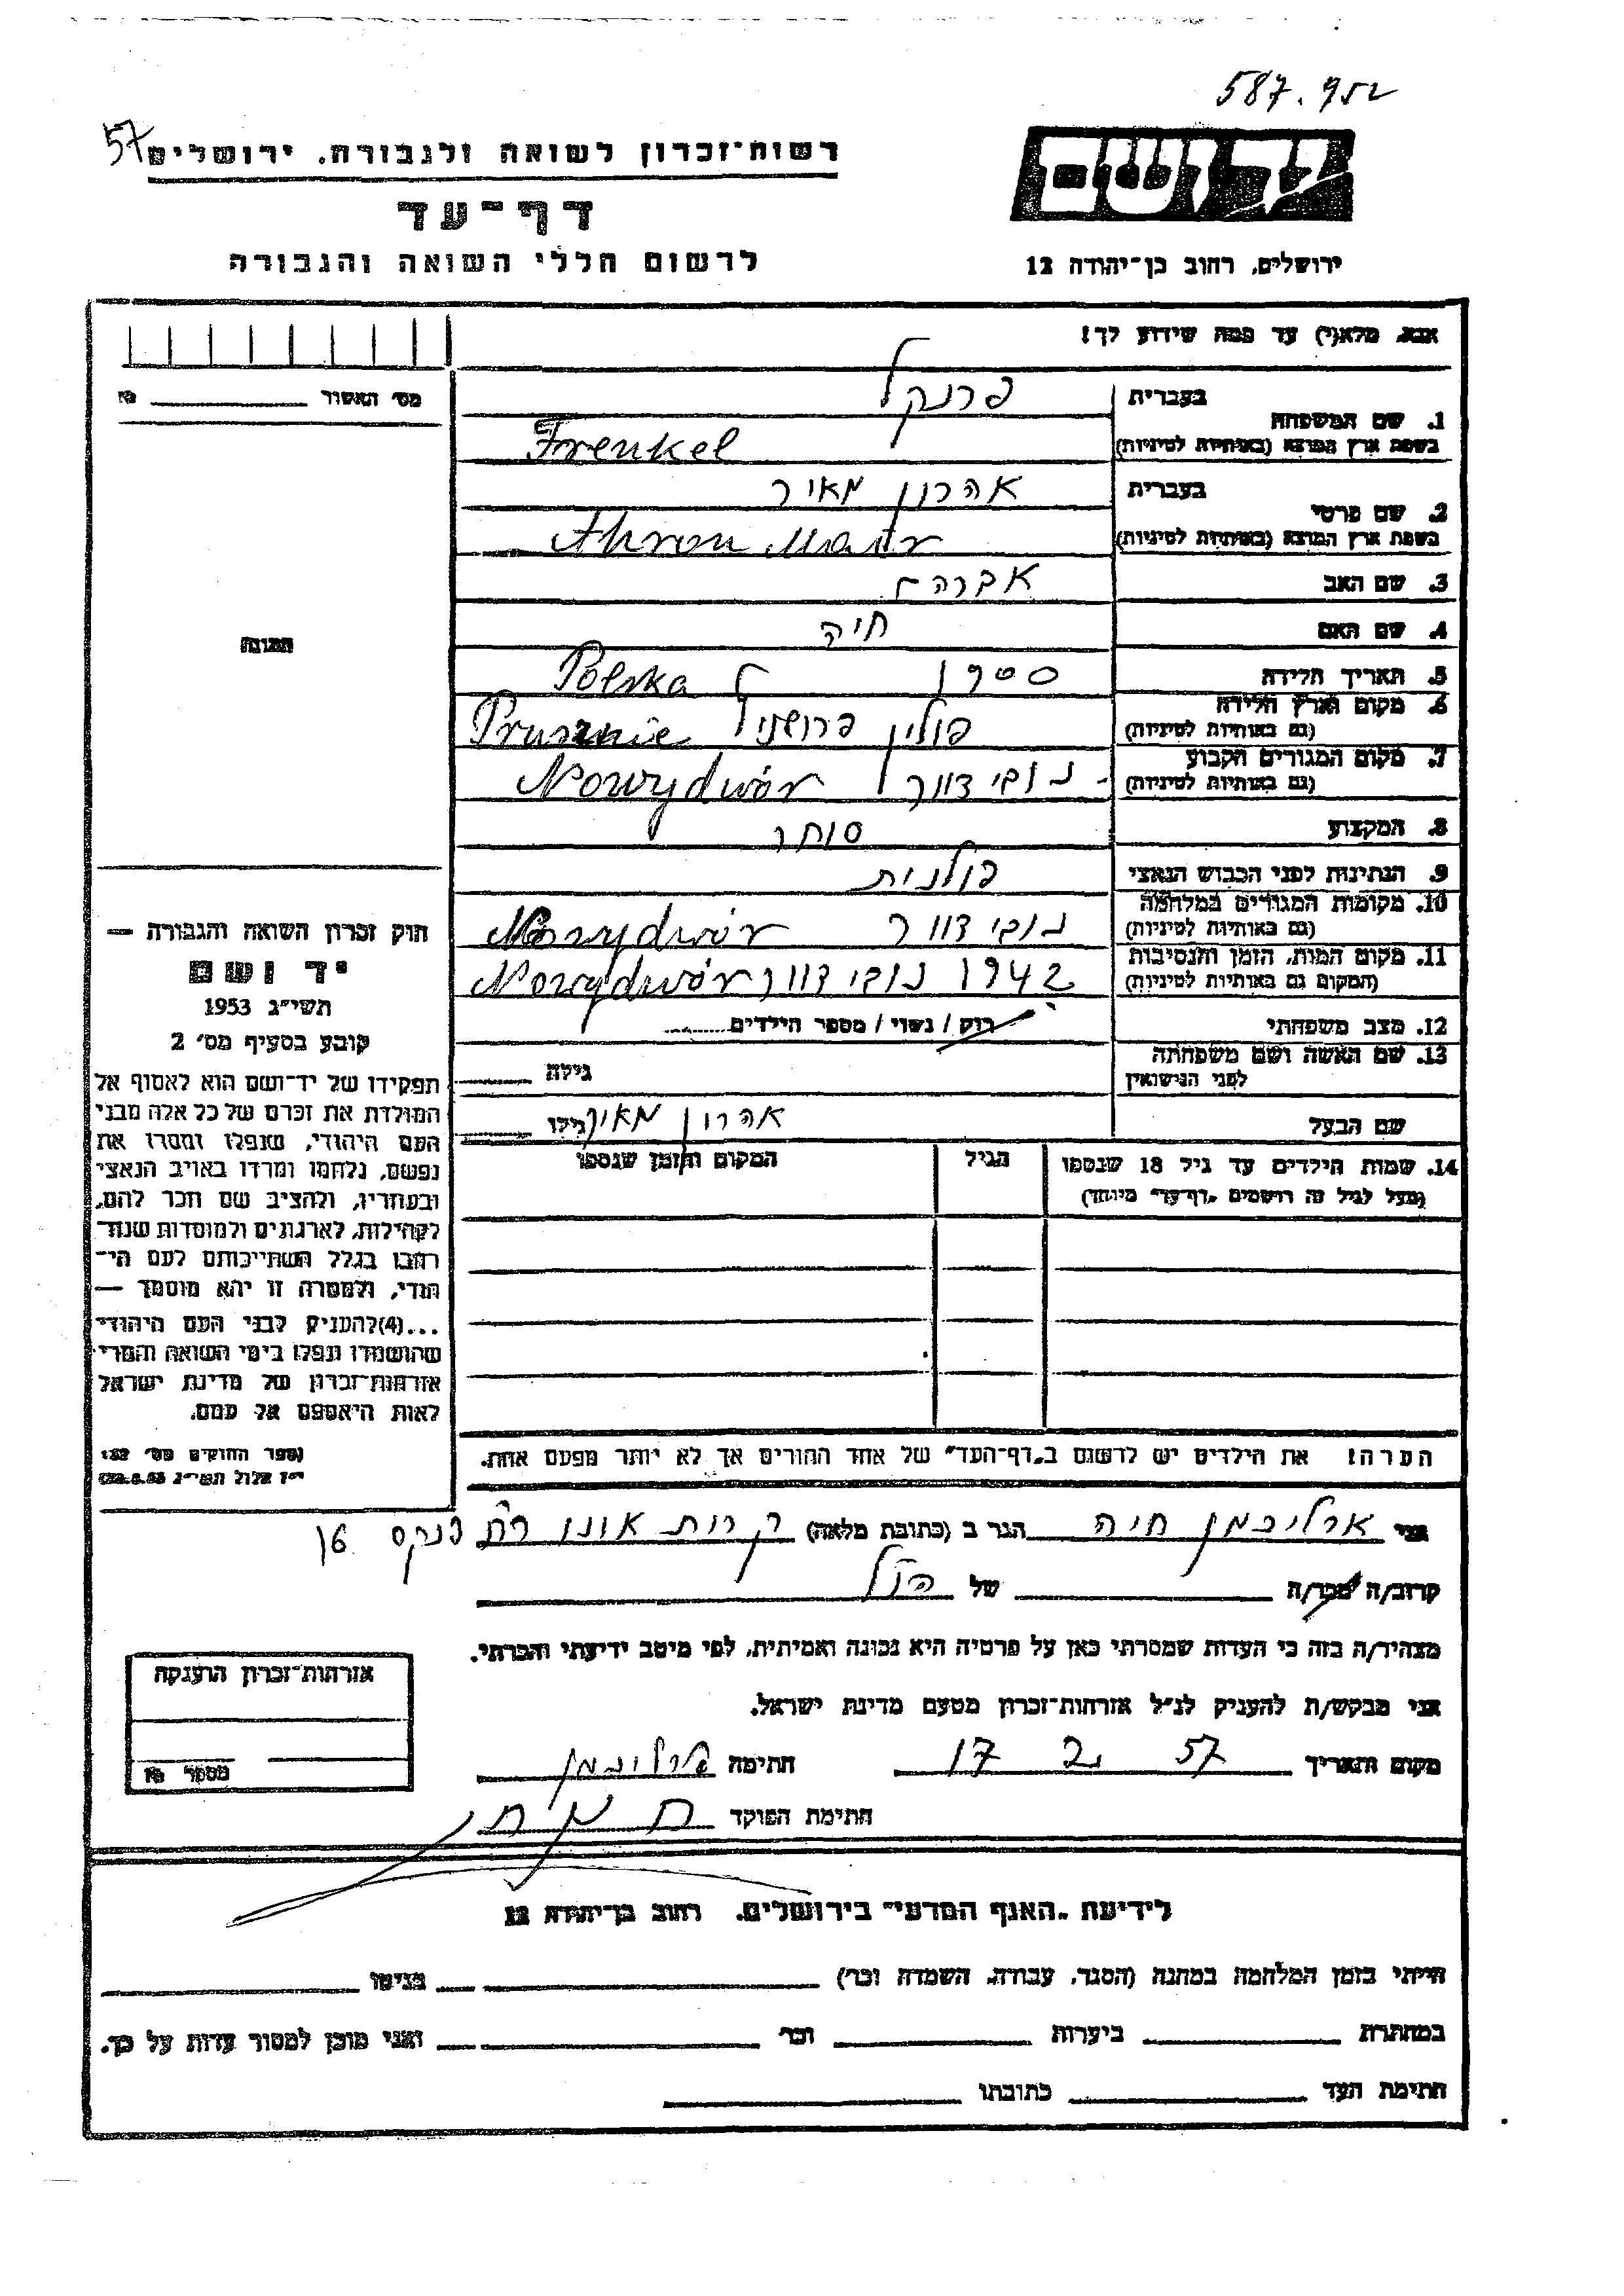 587.952
57
רשות־זכרון לשואה ולגבורה. ירושלים
יד ושם
דף־עד
ירושלים, רחוב בן־יהודה 12
לרשום חללי השואה והגבורה
אנא, מלא(י) עד כמה שידוע לך!
מס׳ האשור
1. שם המשפחה
בעברית פרנקל
בשפת ארץ המוצא (באותיות לטיניות) Frenkel
2. שם פרטי
בעברית אהרון מאיר
בשפת ארץ המוצא (באותיות לטיניות) Ahron
3. שם האב אברהם
4. שם האם חיה
5. תאריך הלידה
6. מקום וארץ הלידה Polska
(גם באותיות לטיניות) פולין
7. מקום המגורים הקבוע
(גם באותיות לטיניות) נובי דוור Nowydwór
8. המקצוע סוחר
9. הנתינות לפני הכבוש הנאצי פולנית
10. מקומות המגורים במלחמה
(גם באותיות לטיניות) נובי דוור Nowydwór
11. מקום המות, הזמן והנסיבות
(המקום גם באותיות לטיניות) 1942 נובי דוור Nowydwór
12. מצב משפחתי רוק / נשוי / מספר הילדים
13. שם האשה ושם משפחתה
לפני הנישואין גילה
שם הבעל אהרון מאיר גילו
14. שמות הילדים עד גיל 18 שנספו
(מעל לגיל זה רושמים „דף־עד״ מיוחד)
הגיל
המקום והזמן שנספו
הערה! את הילדים יש לרשום ב„דף־העד״ של אחד ההורים אך לא יותר מפעם אחת.
תמונה
חוק זכרון השואה והגבורה —
יד ושם
תשי״ג 1953
קובע בסעיף מס׳ 2
תפקידו של יד־ושם הוא לאסוף אל
המולדת את זכרם של כל אלה מבני
העם היהודי, שנפלו ומסרו את
נפשם, נלחמו ומרדו באויב הנאצי
ובעוזריו, ולהציב שם וזכר להם,
לקהילות, לארגונים ולמוסדות שנח־
רבו בגלל השתייכותם לעם הי־
הודי, ולמטרה זו יהא מוסמך —
...(4)להעניק לבני העם היהודי
שהושמדו ונפלו בימי השואה והמרי
אזרחות־זכרון של מדינת ישראל
לאות היאספם אל עמם.
(ספר החוקים מס׳ 132
י״ז אלול תשי״ג 28.8.53)
אני חיה הגר ב (כתובת מלאה) קרית אונו רח פנקס 16
קרוב/ה מכר/ה של הנ״ל
מצהיר/ה בזה כי העדות שמסרתי כאן על פרטיה היא נכונה ואמיתית, לפי מיטב ידיעתי והכרתי.
אני מבקש/ת להעניק לנ״ל אזרחות־זכרון מטעם מדינת ישראל.
מקום ותאריך 57 2 17 חתימה
חתימת הפוקד
אזרחות־זכרון הוענקה
מספר
לידיעת „האגף המדעי״ בירושלים. רחוב בן־יהודה 12
הייתי בזמן המלחמה במחנה (הסגר, עבודה, השמדה וכו׳) בגיטו
במחתרת ביערות וכו׳ ואני מוכן למסור עדות על כך.
חתימת העד כתובתו